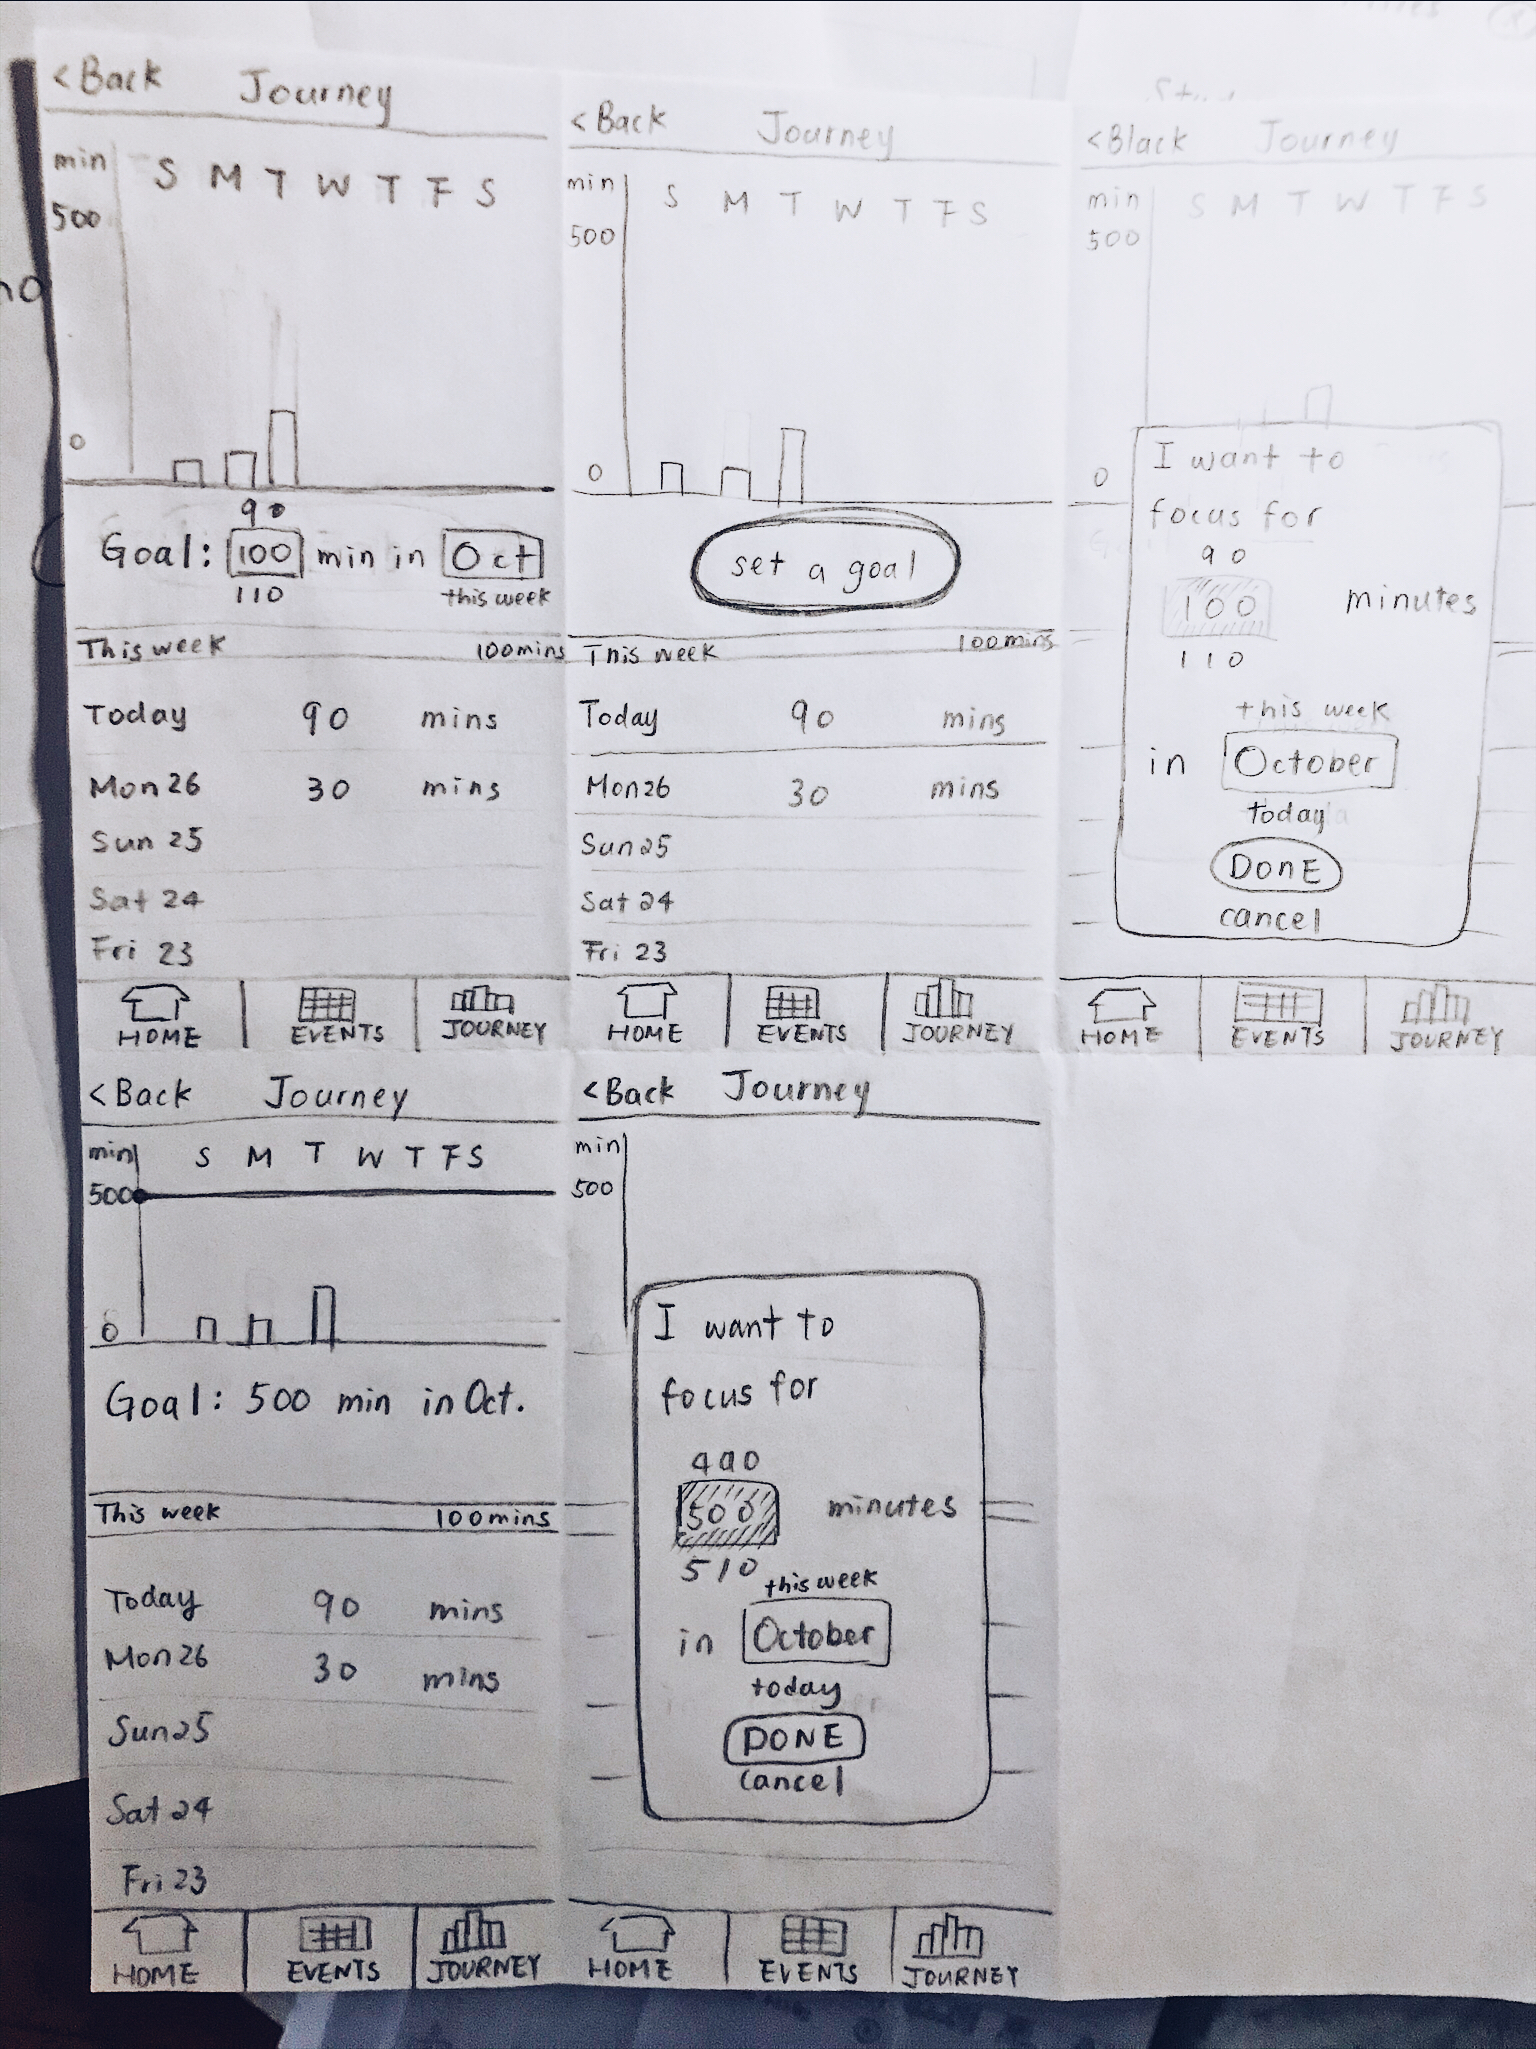 < Back Journey
min S M T W T F S
500
0
90
Goal: 100 min in Oct
110 this week
This week 100mins
Today 90 mins
Mon 26 30 mins
Sun 25
Sat 24
Fri 23
HOME EVENTS JOURNEY
< Back Journey
min S M T W T F S
500
0
set a goal
This week 100mins
Today 90 mins
Mon 26 30 mins
Sun 25
Sat 24
Fri 23
HOME EVENTS JOURNEY
< Black Journey
min S M T W T F S
500
0
I want to
focus for
90
100 minutes
110
this week
in October
today
DONE
cancel
HOME EVENTS JOURNEY
< Back Journey
min S M T W T F S
500
0
Goal: 500 min in Oct.
This week 100mins
Today 90 mins
Mon 26 30 mins
Sun 25
Sat 24
Fri 23
HOME EVENTS JOURNEY
< Back Journey
min
500
I want to
focus for
490
500 minutes
510
this week
in October
today
DONE
cancel
HOME EVENTS JOURNEY